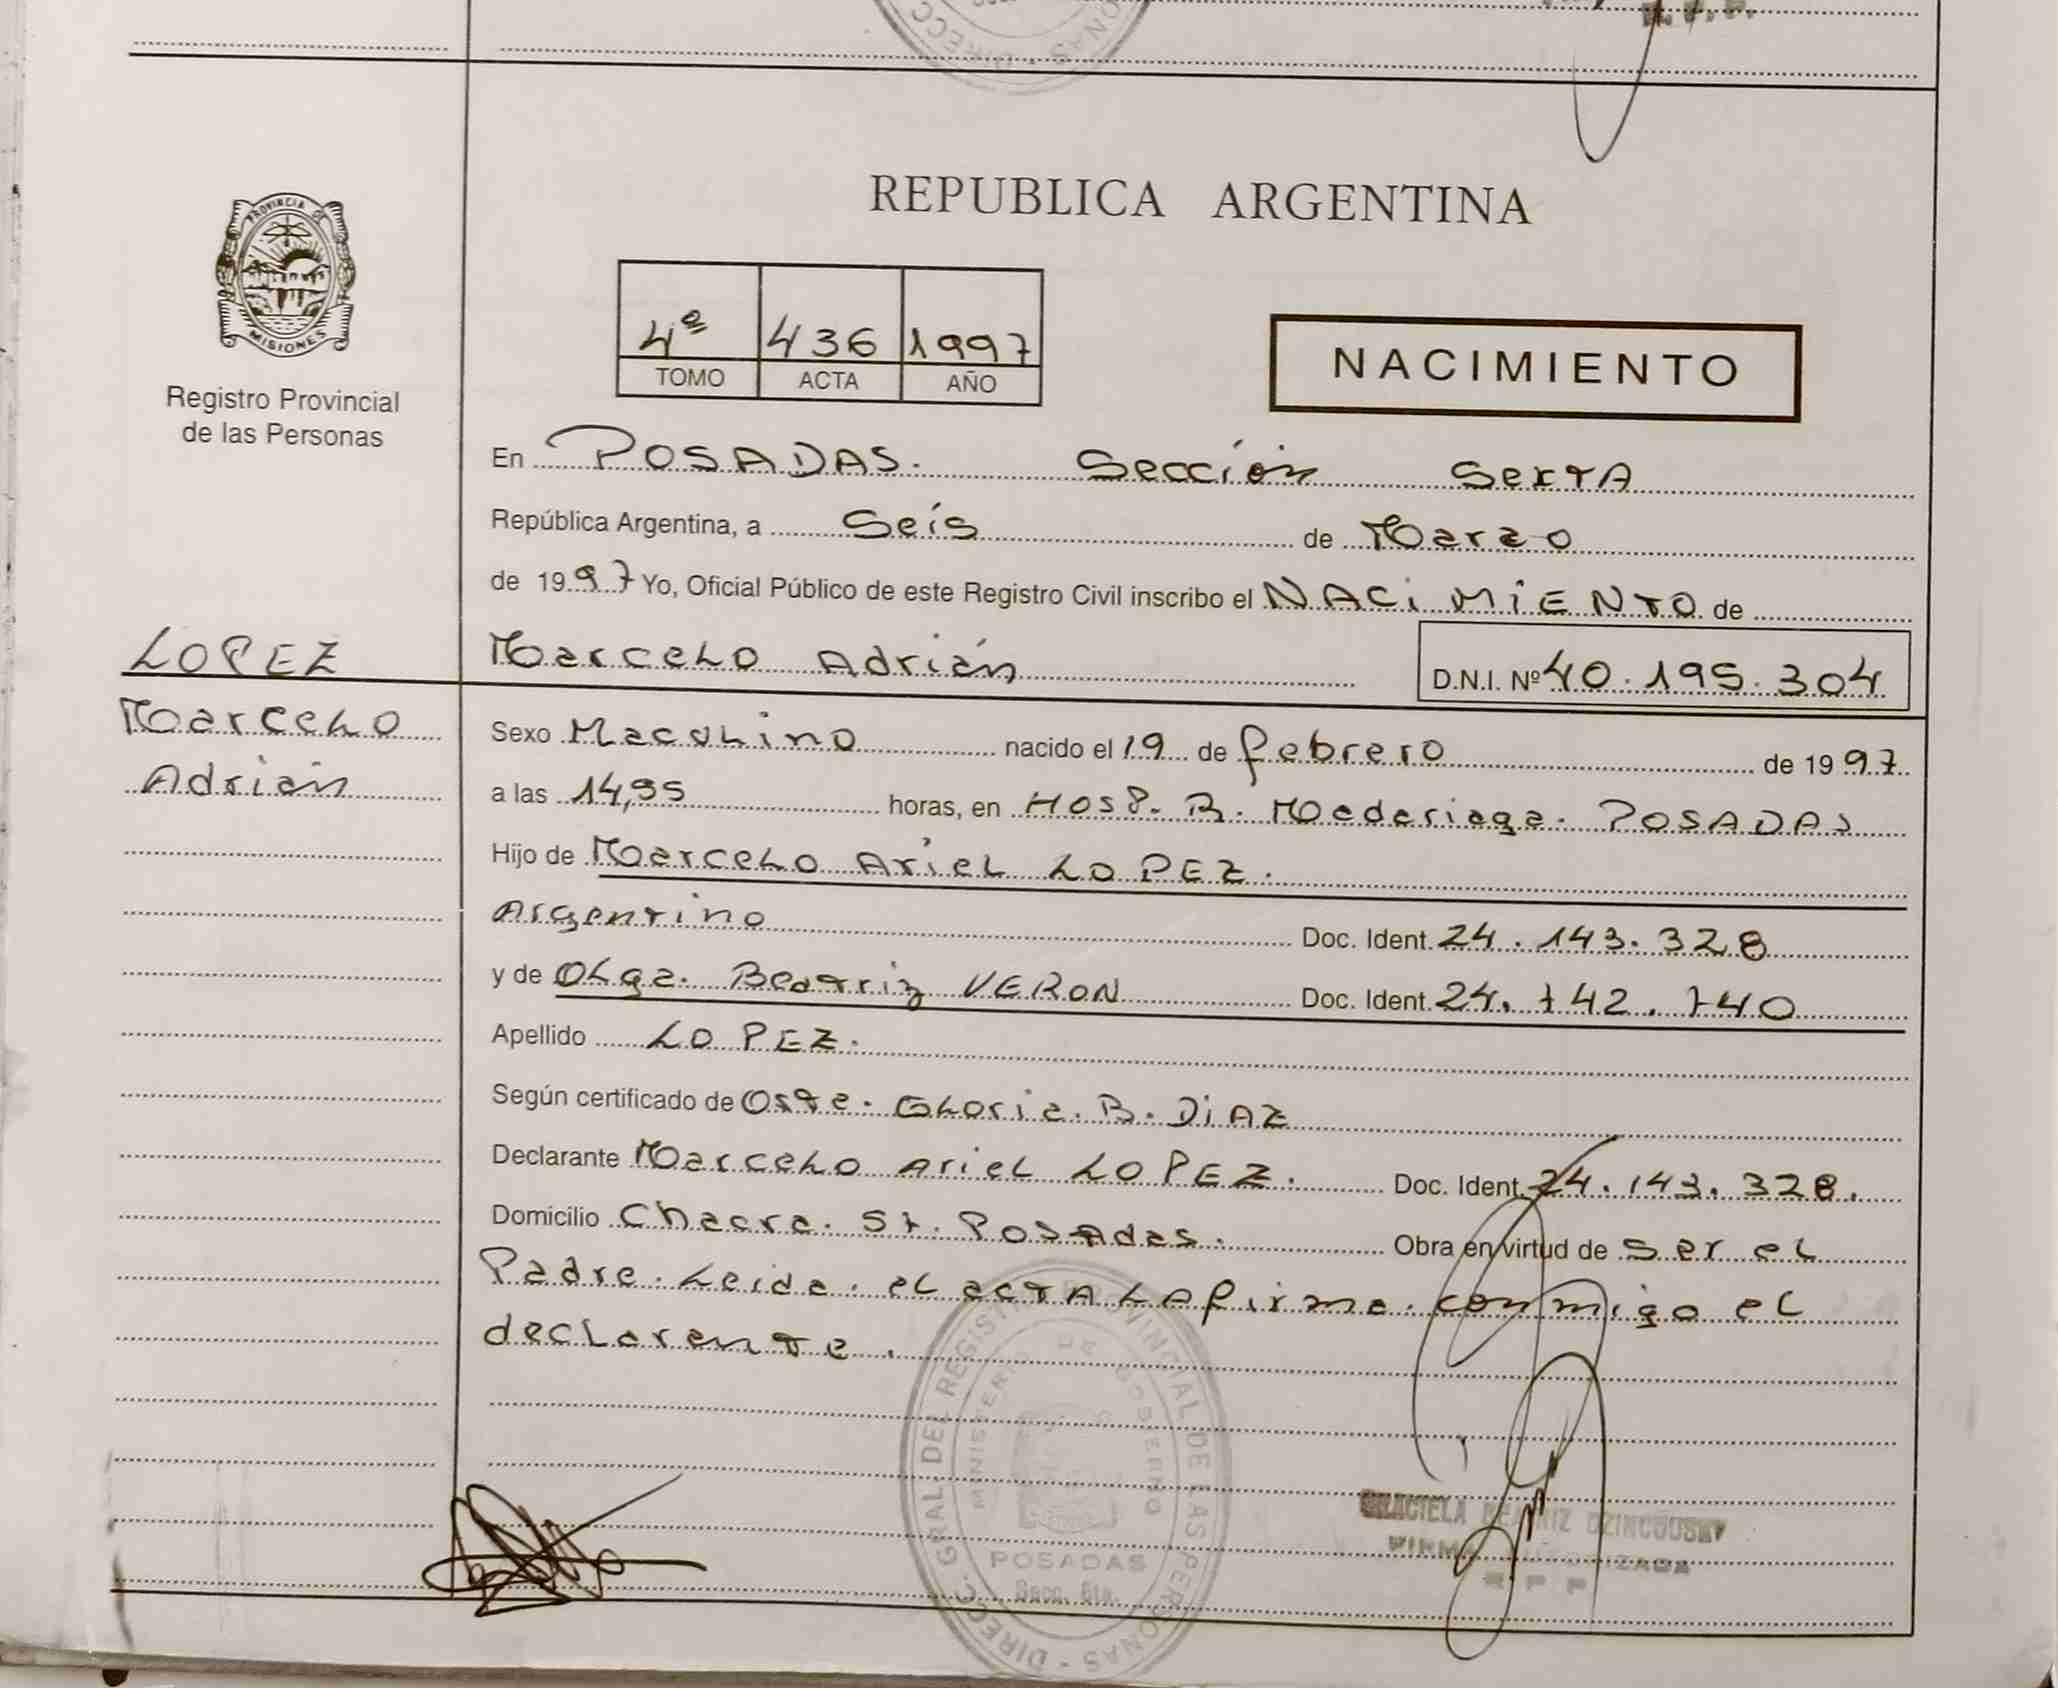 PROVINCIA DE
MISIONES
Registro Provincial
de las Personas
REPUBLICA ARGENTINA
4º 436 1997
TOMO ACTA AÑO
NACIMIENTO
En POSADAS. Sección Sexta
República Argentina, a Seis de Marzo
de 1997 Yo, Oficial Público de este Registro Civil inscribo el NACIMIENTO de
LOPEZ Marcelo Adrián D.N.I. Nº 40.195.304
Marcelo
Adrián
Sexo Masculino nacido el 19 de febrero de 1997
a las 14,35 horas, en Hosp. R. Madariaga. POSADAS
Hijo de Marcelo Ariel LOPEZ.
Argentino Doc. Ident. 24.143.328
y de Olga. Beatriz VERON Doc. Ident. 24.742.740
Apellido LOPEZ.
Según certificado de Oste. Gloria. B. DIAZ
Declarante Marcelo Ariel LOPEZ. Doc. Ident. 24.143.328.
Domicilio Chacra. Posadas. Obra en virtud de ser el
Padre. Leida. el acta la firma. conmigo el
declarante.
DIRECC. GRAL. DEL REGISTRO PROVINCIAL DE LAS PERSONAS
MINISTERIO DE GOBIERNO
POSADAS
Secc. 6ta.
GRACIELA BEATRIZ
FIRMA AUTORIZADA